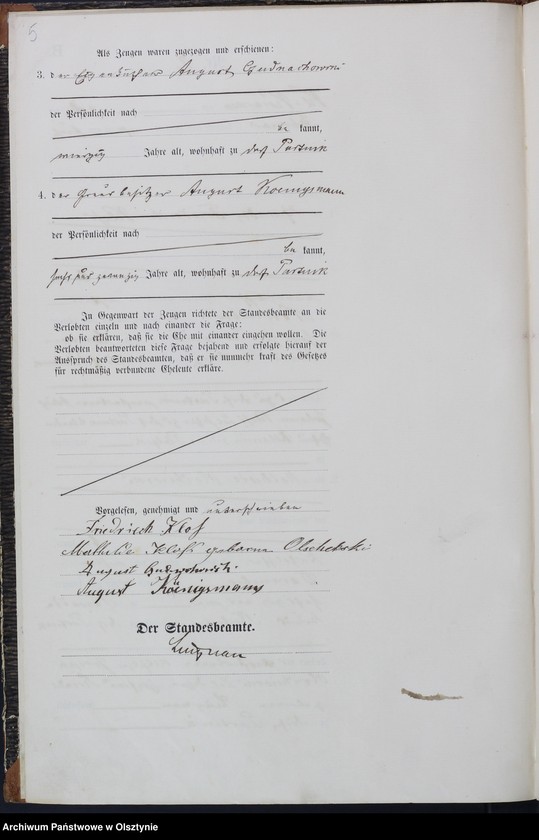 5
Als Zeugen waren zugezogen und erschienen:
3. der August
der Persönlichkeit nach
be kannt,
vierzig Jahre alt, wohnhaft zu dorf
4. der besitzer August Koenigsmann
der Persönlichkeit nach
be kannt,
sechs und zwanzig Jahre alt, wohnhaft zu dorf
In Gegenwart der Zeugen richtete der Standesbeamte an die
Verlobten einzeln und nach einander die Frage:
ob sie erklären, daß sie die Ehe mit einander eingehen wollen. Die
Verlobten beantworteten diese Frage bejahend und erfolgte hierauf der
Ausspruch des Standesbeamten, daß er sie nunmehr kraft des Gesetzes
für rechtmäßig verbundene Eheleute erkläre.
Vorgelesen, genehmigt und unterschrieben
Friedrich Kloß
Mathilde Kloß geborne Olschewski
August
August Köenigsmann
Der Standesbeamte.
Archiwum Państwowe w Olsztynie